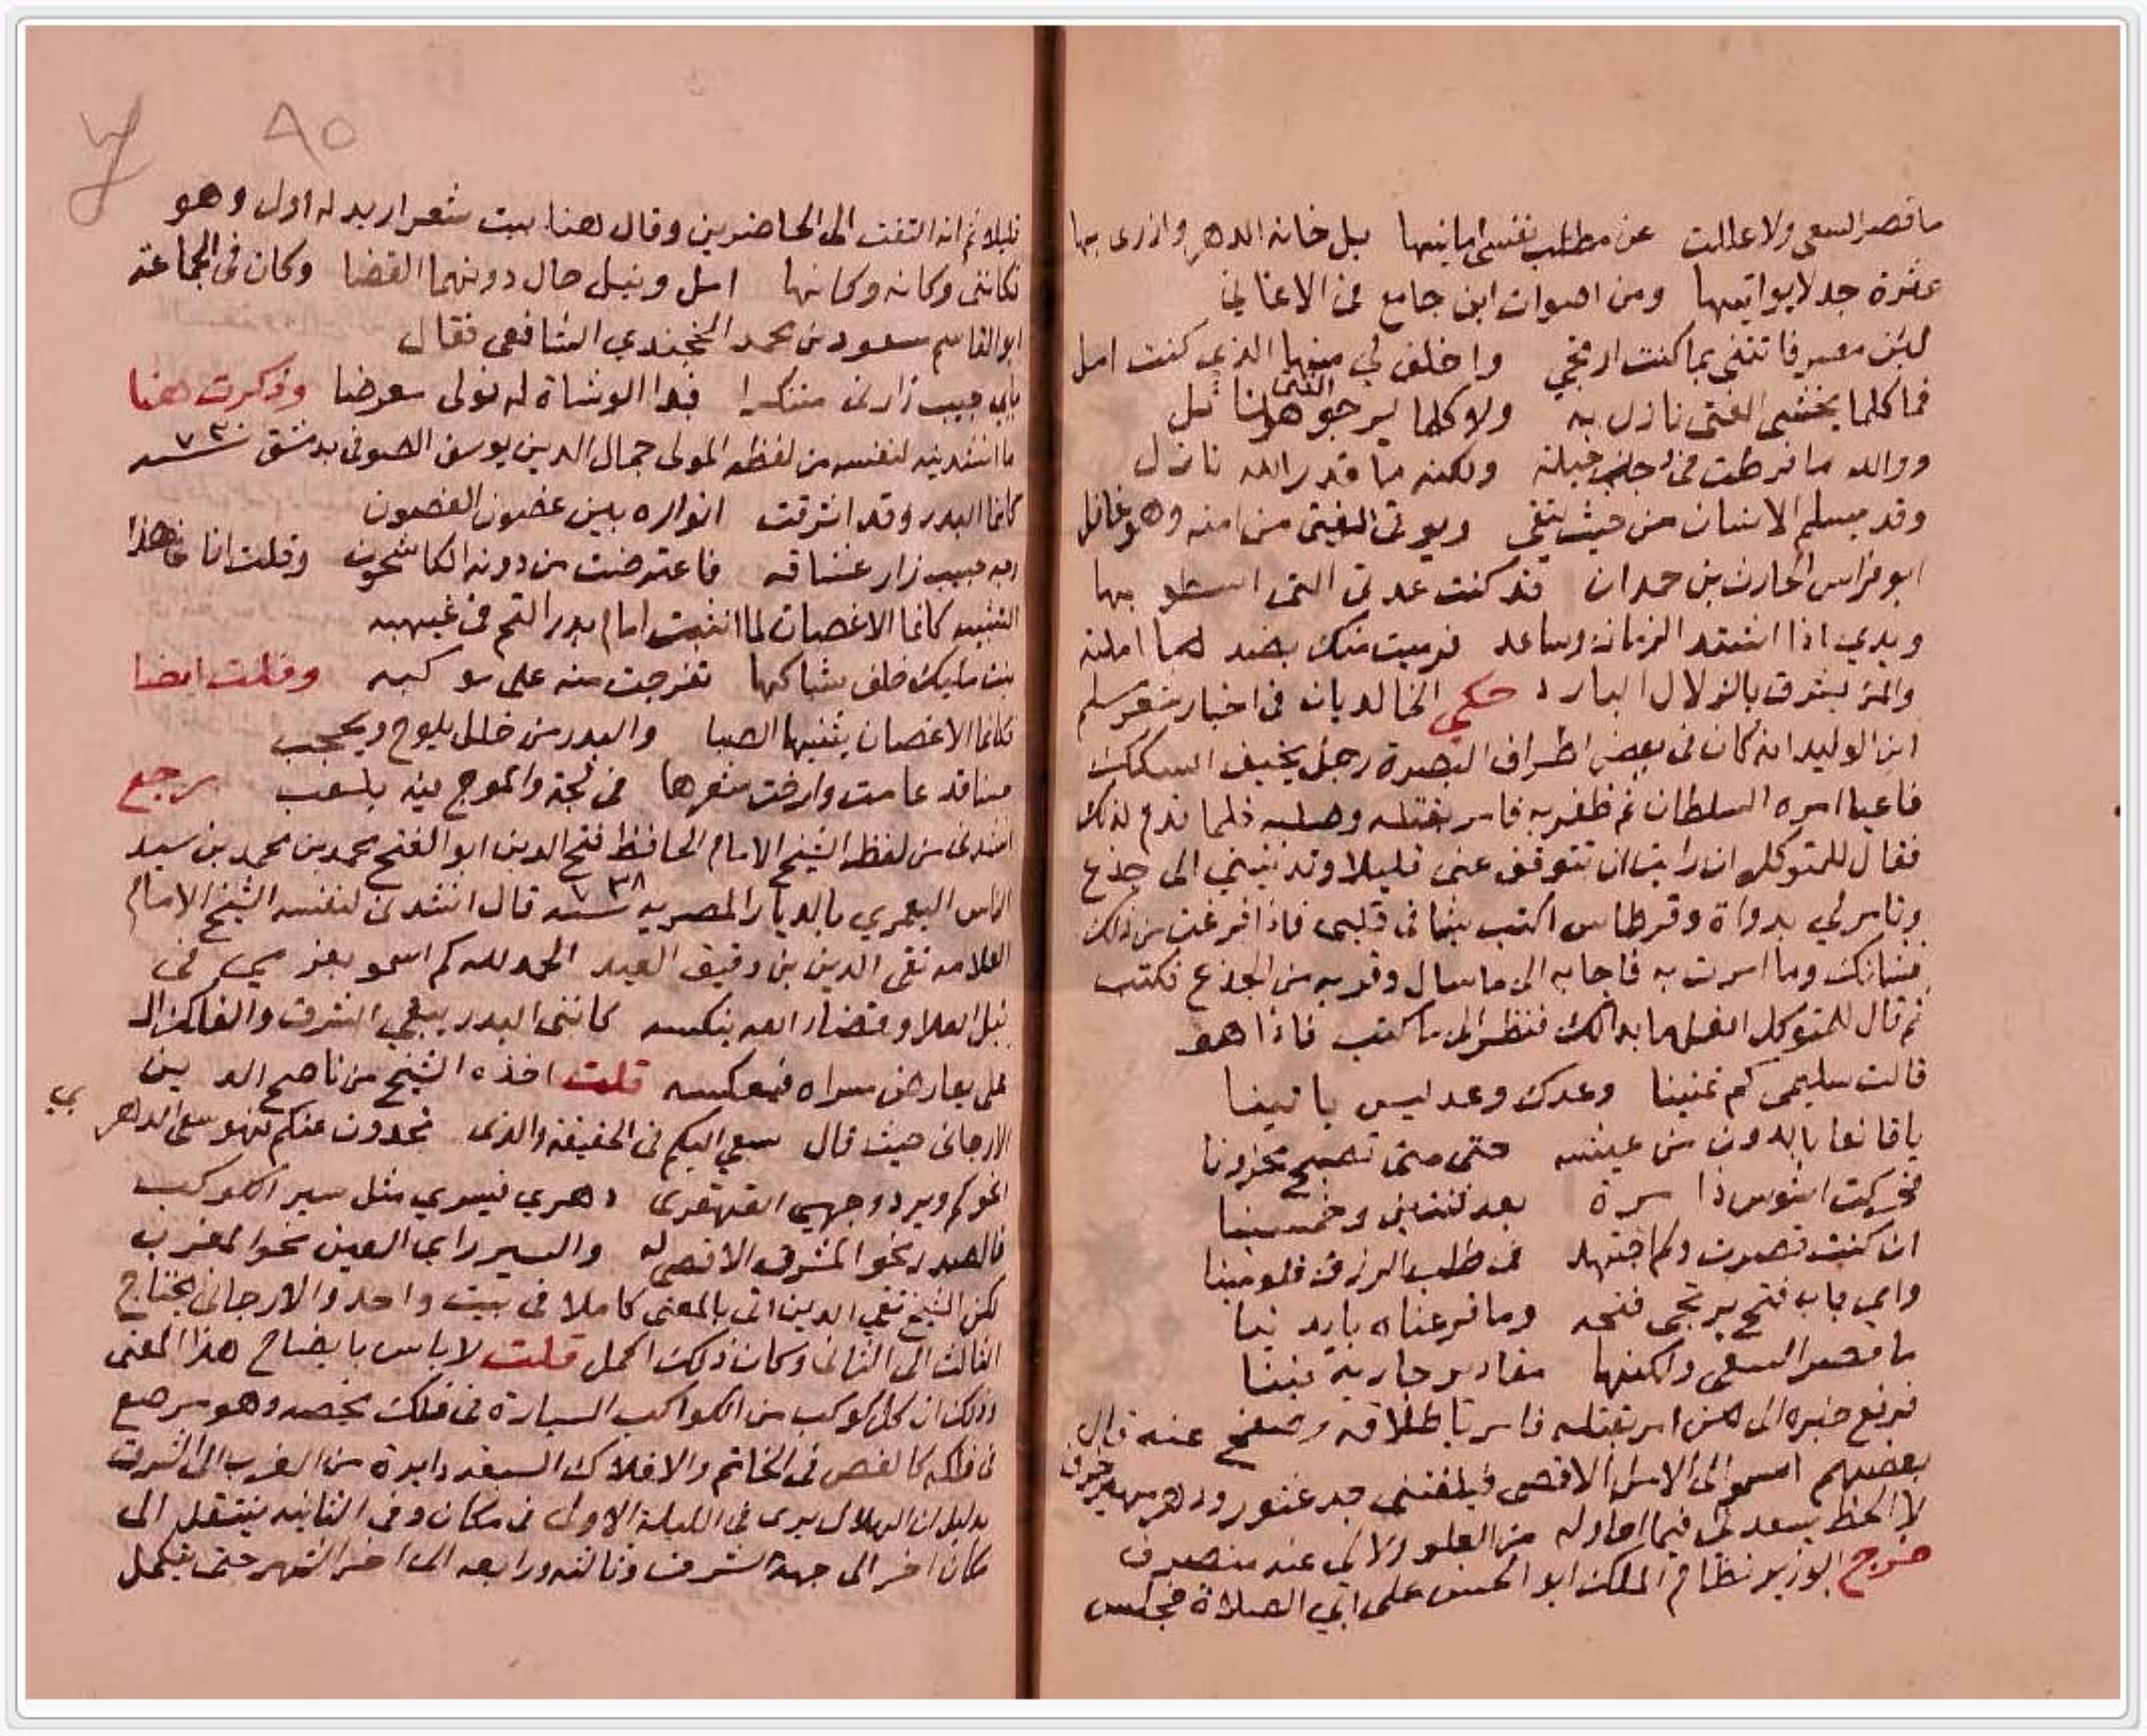 ما قصر السعي ولا عللت عن مطلب نفسي امانيها بل خانه الدهر وازرى بها
عثرة جد لا يواتيها ومن اصوات ابن جامع في الاغاني
لئن مصر فاتتني بما كنت ارتجي واخلفني منها الذي كنت امل
فما كلما يخشى الفتى نازل به ولا كلما يرجو الفتى هو نائل
ووالله ما فرطت في حيلة ولكنه ما قدر الله نازل
وقد يسلم الانسان من حيث يتقي ويوتى الفتى من امنه وهو غافل
ابو فراس الحارث بن حمدان قد كنت عدتي التي اسطو بها
ويدي اذا اشتد الزمان وساعدي فرميت منك بضد ما املته
والمرء يشرق بالزلال البارد حكى الخالديان في اخبار شعر مسلم
ابن الوليد انه كان في بعض اطراف البصرة رجل يخيف السكك
فاعيا امره السلطان ثم ظفر به فامر بقتله وصلبه فلما قدم لذلك
فقال للمتوكل ان رايت ان تتوقف عني قليلا وتدنيني الى جذع
وتامر لي بدواة وقرطاس اكتب شيا في قلبي فاذا فرغت من ذلك
فشانك وما امرت به فاجابه الى ما سال وقربه من الجذع فكتب
ثم قال للمتوكل افعل ما بدا لك فنظر الى ما كتب فاذا هو
قالت سليمى كم تمنينا وعدك وعد ليس ياتينا
يا قانعا بالدون من عيشه حتى متى تصبح محزونا
فحركت اشوس ذا مرة بعد ثنتين وخمسينا
ان كنت قصرت ولم اجتهد في طلب الرزق فلومينا
واي باب فتح يرتجى فتحه وما قرعناه بايدينا
ما قصر السعي ولكنها مقادير جارية فينا
فرفع خبره الى من امر بقتله فامر باطلاقه وصفح عنه قال
بعضهم اسمو الى الامل الاقصى فيلفتني جد عثور ودهر
لا الحظ يسعدني فيما احاوله من العلو ولا لي عنه منصرف
خرج الوزير نظام الملك ابو الحسن على الصلاة فجلس
قليلا ثم انه التفت الى الحاضرين وقال هنا بيت شعر اريد له اول وهو
فكانني وكانه وكانها امل ونيل حال دونهما القضا وكان في الجماعة
ابو القاسم مسعود بن محمد الخجندي الشافعي فقال
بابي حبيب زارني متنكرا فبدا الوشاة له فولى معرضا وذكرت هنا
ما انشدنيه لنفسه من لفظه المولى جمال الدين يوسف الصوفي بدمشق سنة ٧٣٠
كانما البدر وقد اشرقت انواره بين غضون الغصون
وجه حبيب زار عشاقه فاعترضت من دونه الكاشحون وقلت انا في هذا
التشبيه كانما الاغصان لما انثنت امام بدر التم في غيهبه
بنت مليك خلف شباكها تفرجت منه على موكبه وقلت ايضا
كانما الاغصان يثنيها الصبا والبدر من خلل يلوح ويحجب
حسنا قد عامت وارخت شعرها في لجة والموج فيه يلعب رجع
انشدني من لفظه الشيخ الامام الحافظ فتح الدين ابو الفتح محمد بن محمد بن سيد
الناس اليعمري بالديار المصرية سنة ٧٣٨ قال انشدني لنفسه الشيخ الامام
العلامه تقي الدين بن دقيق العيد الحمد لله كم اسمو بعزمي في
نيل العلا وقضاء الله ينكسه كانني البدر يبغي الشرق والفلك الا
على يعارض مسراه فيعكسه قلت اخذه الشيخ من ناصح الدين
الارجاني حيث قال سعيي اليكم في الحقيقة والذي تجدون عنكم فهو سعي الدهر بي
انحوكم ويرد وجهي القهقرى دهري فسيري مثل سير الكوكب
فالقصد نحو المشرق الاقصى له والسير راي العين نحو المغرب
لكن الشيخ تقي الدين اتى بالمعنى كاملا في بيت واحد والارجاني يحتاج
الثالث الى الثاني وكان ذلك اكمل قلت لا باس بايضاح هذا المعنى
وذلك ان كل كوكب من الكواكب السيارة في فلك يخصه وهو مرصع
في فلكه كالفص في الخاتم والافلاك السبعة دايرة من الغرب الى الشرق
بدليل ان الهلال يرى في الليلة الاولى في مكان وفي الثانيه ينتقل الى
مكان اخر الى جهة الشرق وثالثه ورابعه الى اخر الشهر حتى يكمل
٨٥